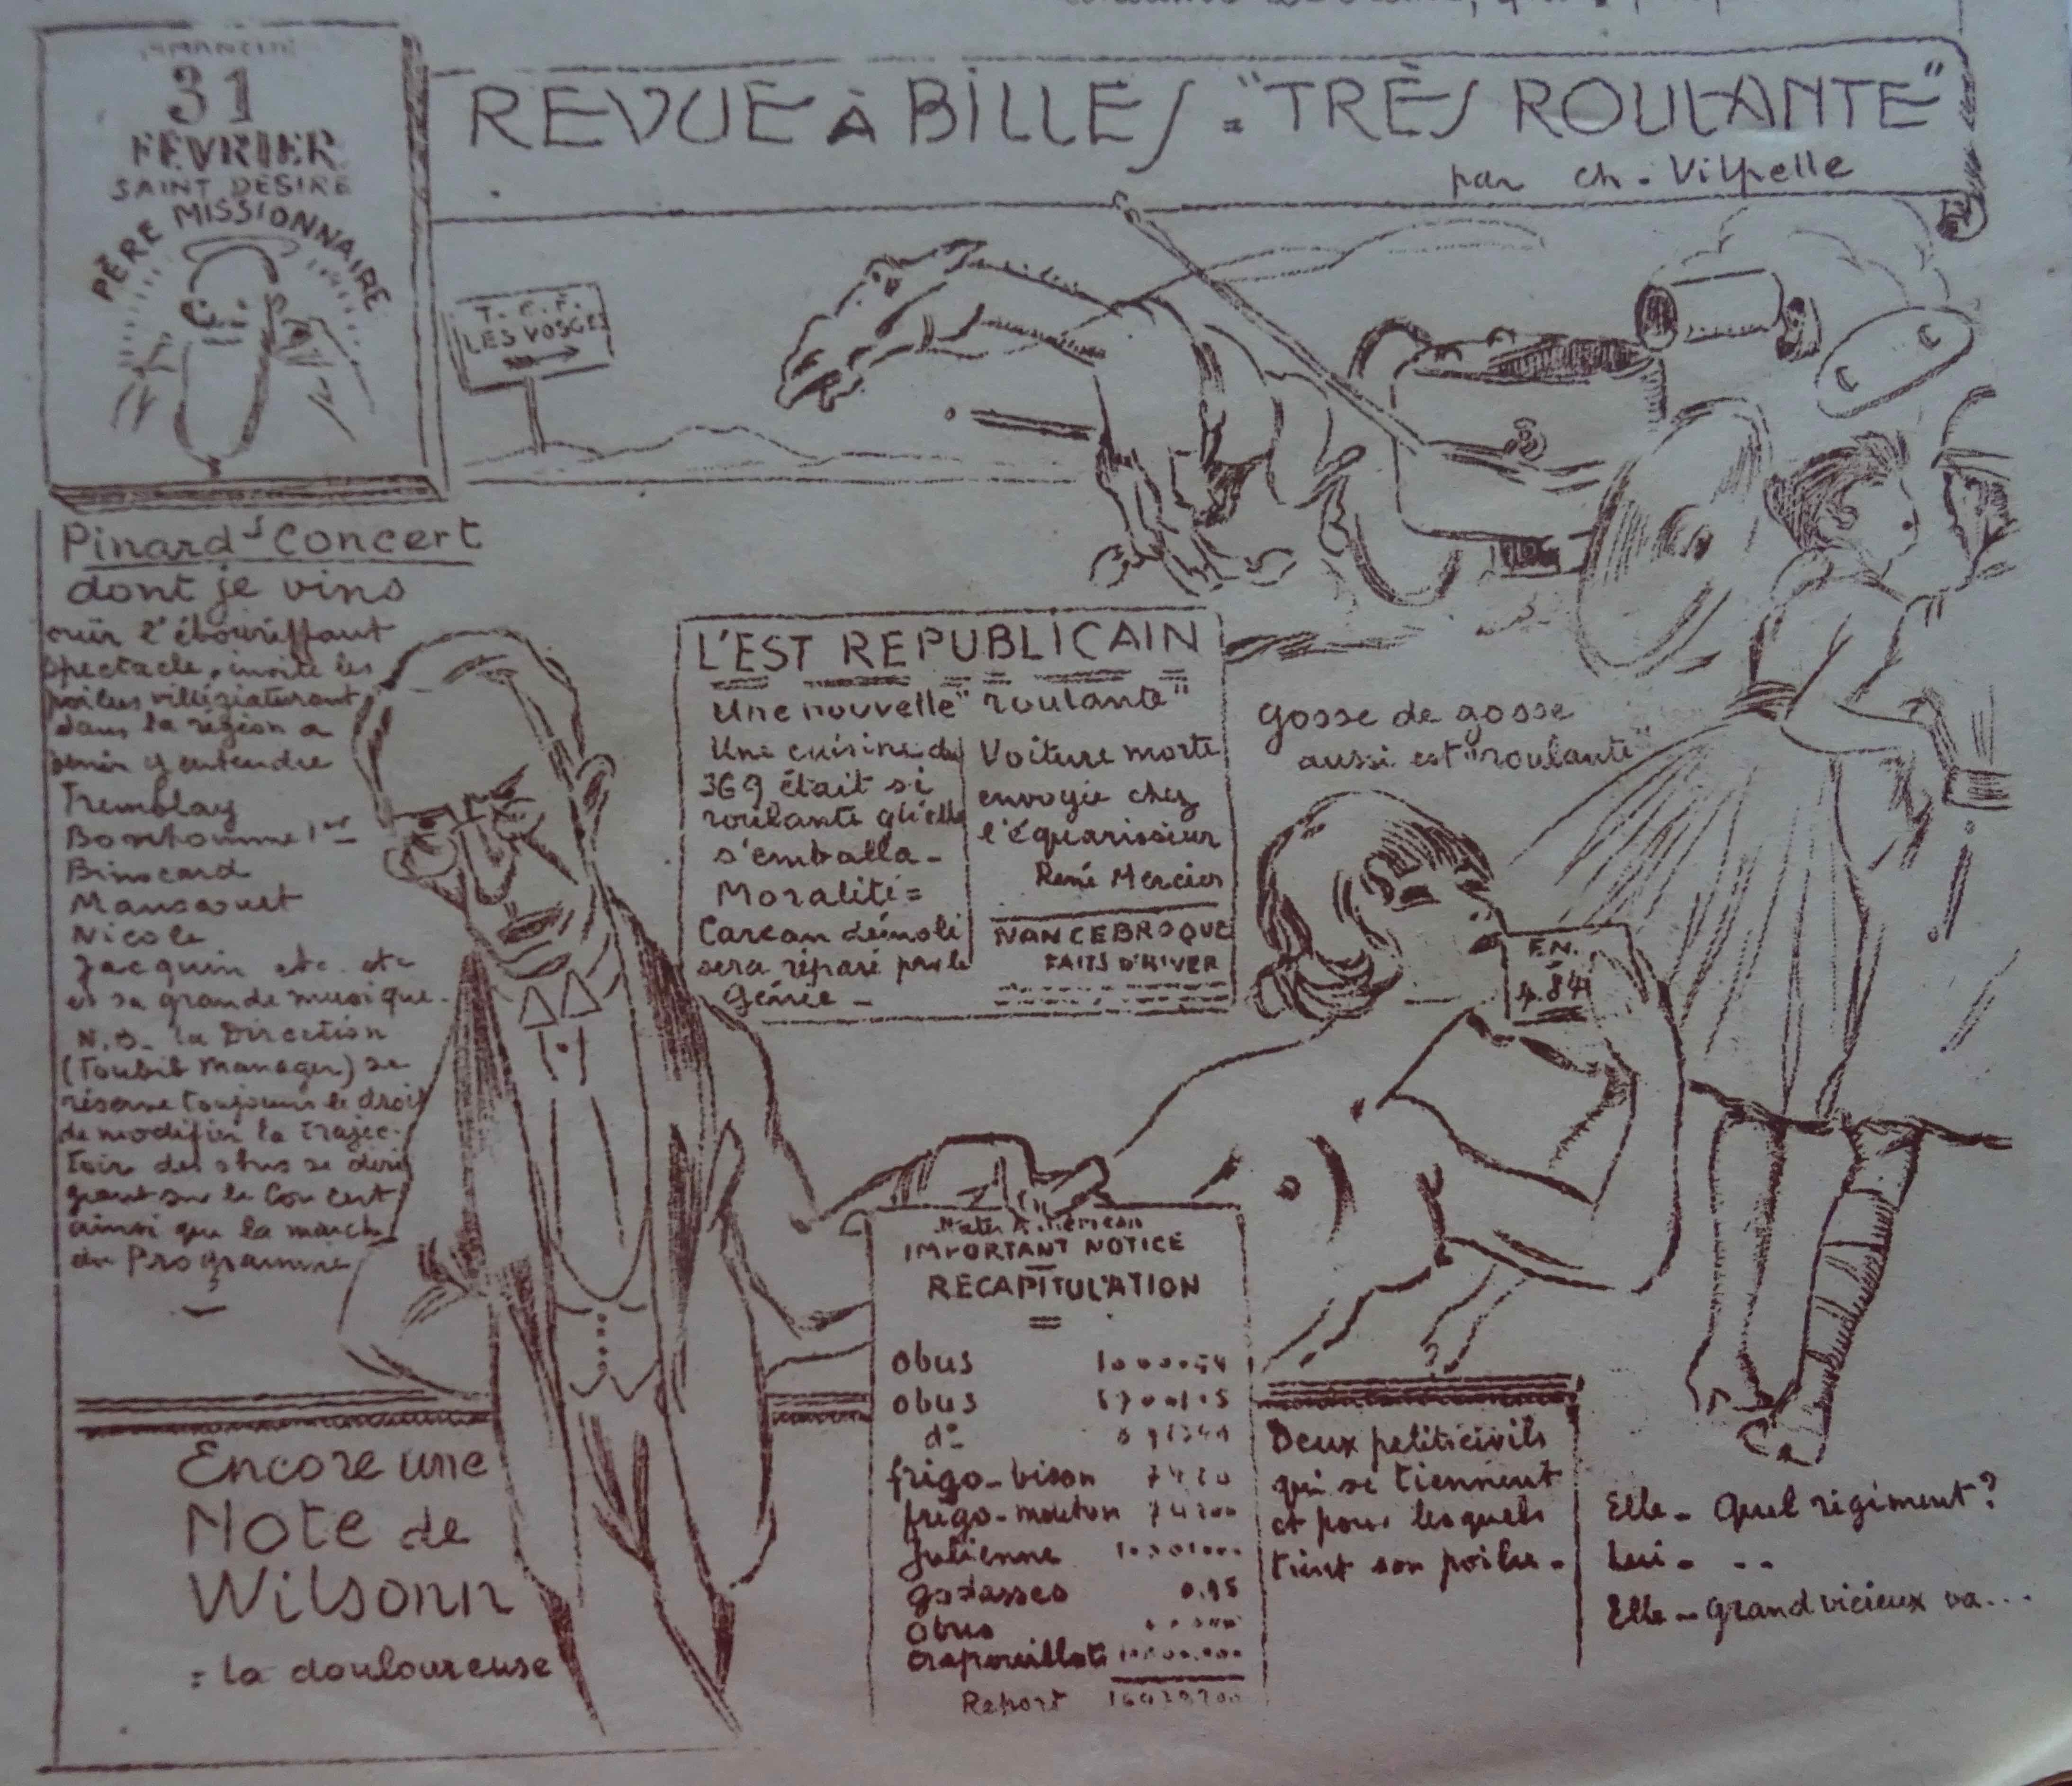 31
FÉVRIER
SAINT DÉSIRÉ
PÈRE MISSIONNAIRE
REVUE À BILLES = "TRÈS ROULANTE"
par Ch. Vilpelle
T.C.F.
LES VOSGES
Pinard's Concert
dont je viens
ouir l'ébouriffant
spectacle, invite les
poilus villégiaturant
dans la région a
venir y entendre
Tremblay
Bonhomme 1er
Binocard
Nicole
Jacquin etc. etc
et sa grande musique.
N.B. la Direction
(Toubib Manager) se
réserve toujours le droit
de modifier la trajec-
toir des obus se diri
geant sur le Concert
ainsi que la marche
du Programme
L'EST REPUBLICAIN
Une nouvelle "roulante"
Une cuisine du
369 était si
roulante qu'elle
s'emballa -
Moralité =
Carcan démoli
sera réparé par le
Génie -
Voiture morte
envoyée chez
l'équarisseur
René Mercier
NANCEBROQUE
FAITS D'HIVER
Gosse de gosse
aussi est "roulante"
E.N.
4.84
Encore une
Note de
Wilsonn
= la douloureuse
American
IMPORTANT NOTICE
RECAPITULATION
obus
obus
do
frigo-bison 7420
frigo-mouton
Julienne
godasses 0.95
obus
crapouillots
Report
Deux petits civils
qui se tiennent
et pour lesquels
tient son poilu -
Elle - Quel régiment?
Lui - ..
Elle - Grand vicieux va....